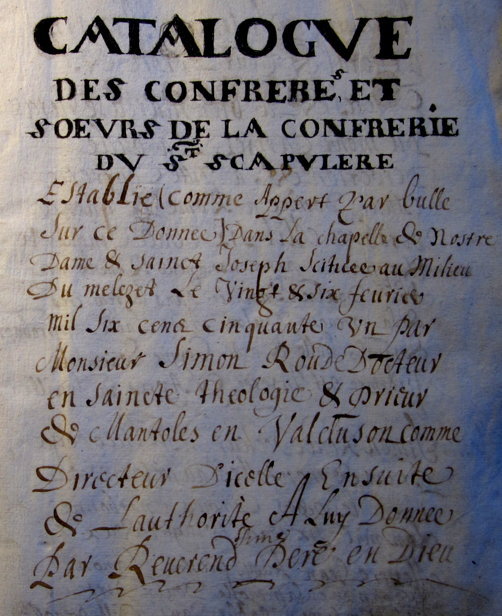 CATALOGVE
DES CONFRERES, ET
SOEVRS DE LA CONFRERIE
DV St SCAPVLERE
Establie (comme Appert par bulle
Sur ce Donnee) Dans La chapelle de Nostre
Dame & sainct Joseph scituee au Milieu
Du melezet Le Vingt & six feurier
mil six cens cinquante Vn par
Monsieur Simon Roude Docteur
en saincte theologie & Prieur
de Mantoles en Valcluson comme
Directeur Dicelle Ensuite
de Lauthorité A Luy Donnee
Par Reverendissime Pere en Dieu